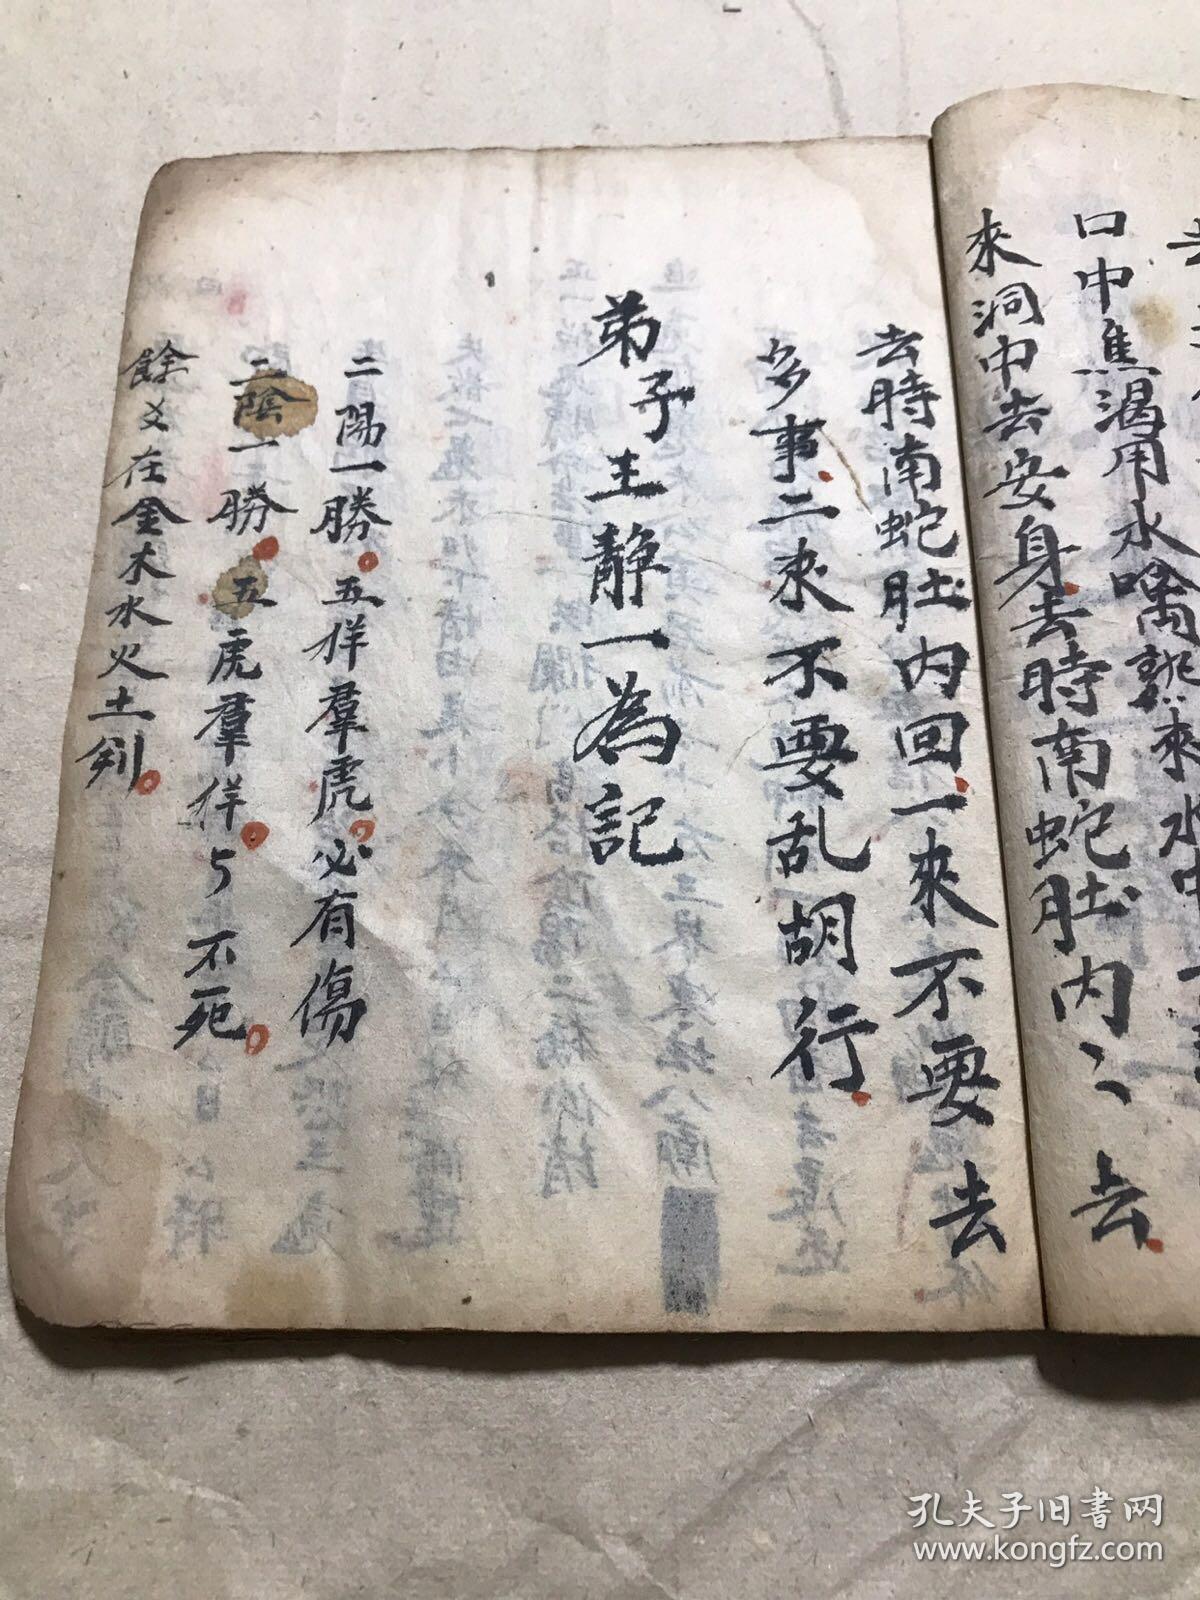 口中焦渴用水噙熟來水中
來洞中去安身去時南蛇肚内〻去
去時南蛇肚内回一來不要去
多事二来不要乱胡行
弟子王静一為記
二陽一勝五样羣虎必有傷
二陰一勝五虎羣样与不死
餘爻在金木水火土別
孔夫子旧书网
www.kongfz.com